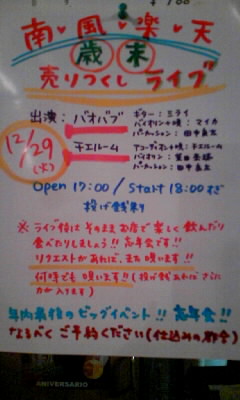 南・風・楽・天
歳 末
売りつくし ライブ
出演：バオバブ
ギター：ミライ
バイオリン＋唄：マイカ
パーカッション：田中良太
12/29
(火)
チエルーム
アコーディオン＋唄：チエルーム
バイオリン：
パーカッション：田中良太
Open 17:00 / Start 18:00すぎ
投げ銭あり
※ ライブ後は そのままお店で 楽しく 飲んだり
食べたりしましょう!! 忘年会です!!
リクエストがあれば、また 唄います!!
何時でも 唄います!! (投げ銭あれば さらに
力が入ります)
年内最後の ビッグイベント!! 忘年会!!
なるべく ご予約ください(仕込みの都合)
ANIVERSARIO